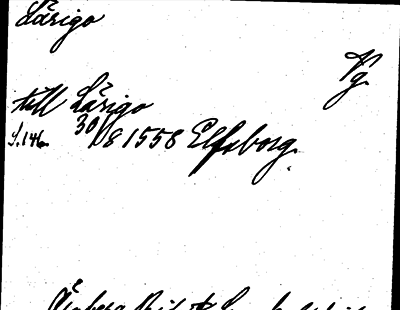 Lärigo
Vg.
till Lärigo
S.146. 30/8 1558 Elfsborg.